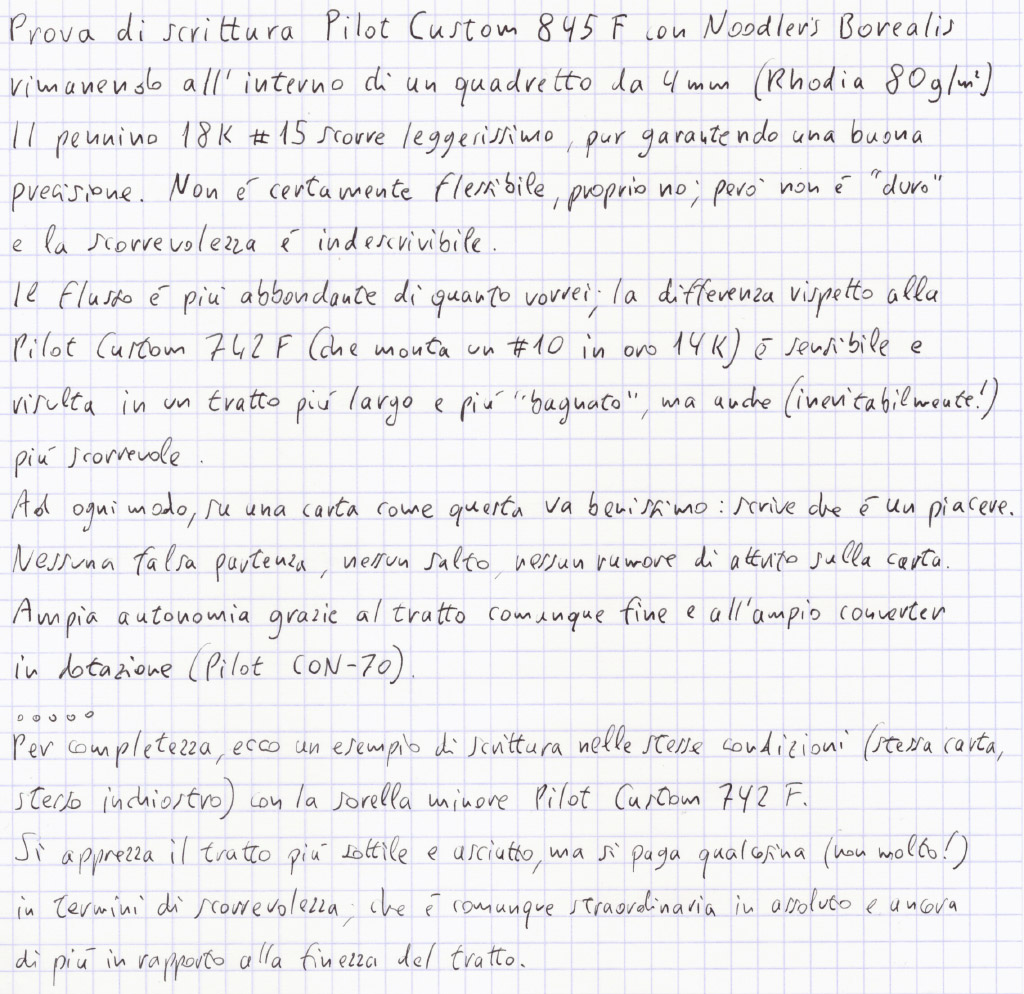 Prova di scrittura Pilot Custom 845 F con Noodler's Borealis
rimanendo all'interno di un quadretto da 4 mm (Rhodia 80g/m²)
Il pennino 18K #15 scorre leggerissimo, pur garantendo una buona
precisione. Non è certamente flessibile, proprio no; però non è "duro"
e la scorrevolezza è indescrivibile.
Il flusso è più abbondante di quanto vorrei; la differenza rispetto alla
Pilot Custom 742 F (che monta un #10 in oro 14K) è sensibile e
risulta in un tratto più largo e più "bagnato", ma anche (inevitabilmente!)
più scorrevole.
Ad ogni modo, su una carta come questa va benissimo: scrive che è un piacere.
Nessuna falsa partenza, nessun salto, nessun rumore di attrito sulla carta.
Ampia autonomia grazie al tratto comunque fine e all'ampio converter
in dotazione (Pilot CON-70).
°°°°°
Per completezza, ecco un esempio di scrittura nelle stesse condizioni (stessa carta,
stesso inchiostro) con la sorella minore Pilot Custom 742 F.
Si apprezza il tratto più sottile e asciutto, ma si paga qualcosina (non molto!)
in termini di scorrevolezza, che è comunque straordinaria in assoluto e ancora
di più in rapporto alla finezza del tratto.